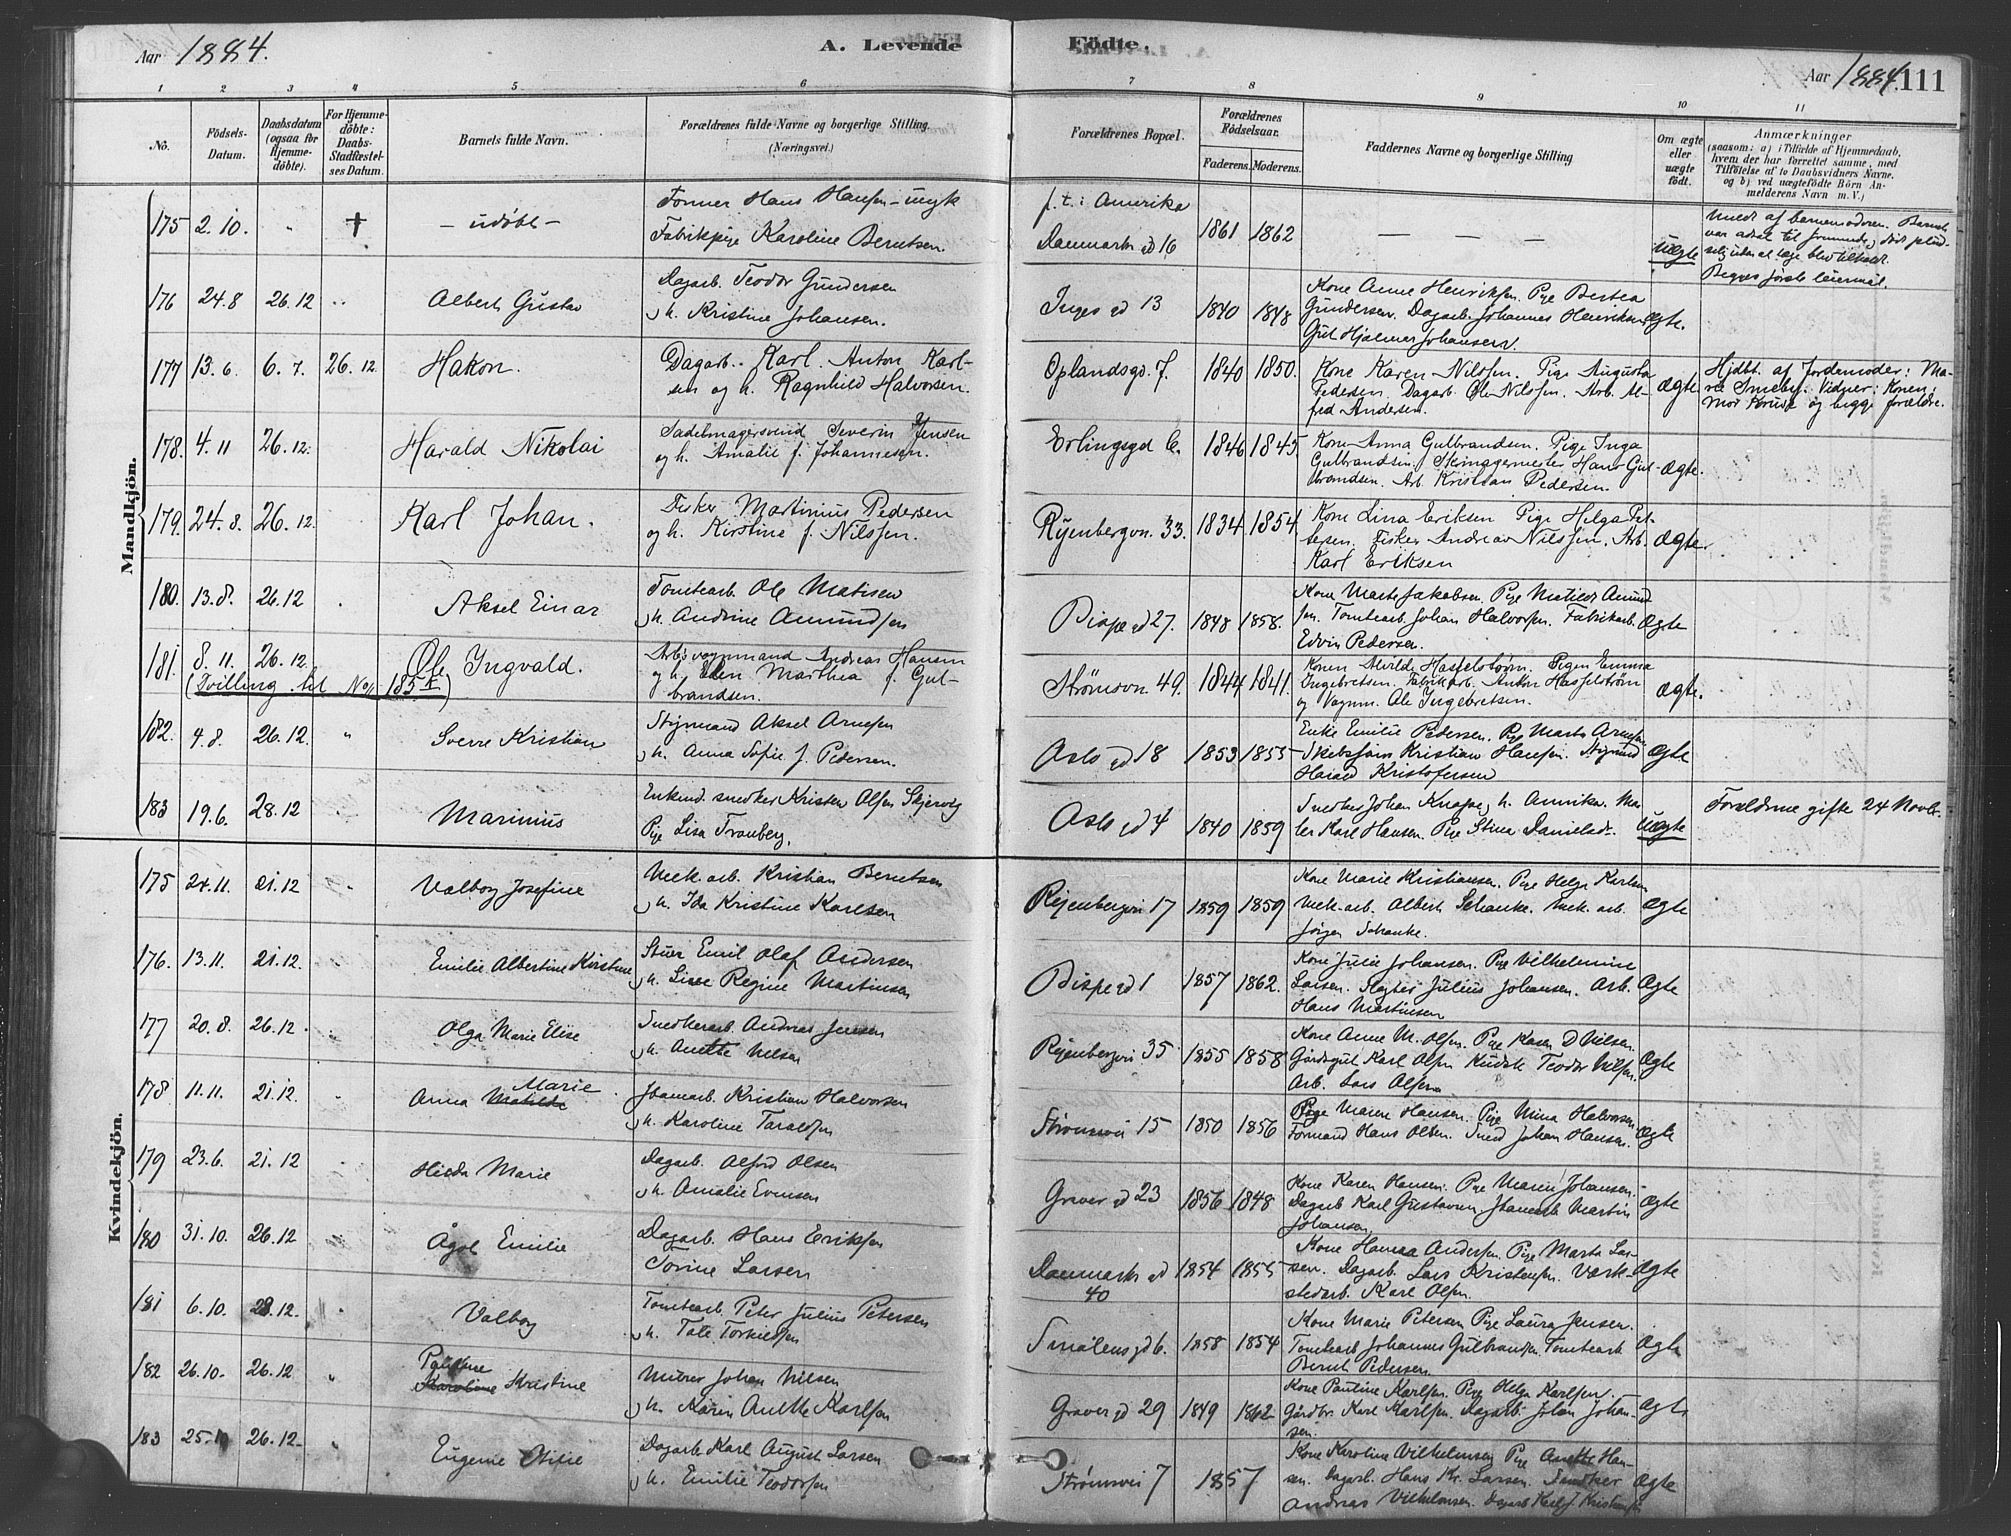 Aar 1884.
A. Levende Födte.
Aar 1884. 111
1 2 3 4 5 6 7 8 9 10 11
No.
Födsels-
Datum.
Daabsdatum
(ogsaa for
Hjemme-
döbte).
For Hjemme-
döbte:
Daabs-
Stadfæstel-
ses Datum.
Barnets fulde Navn.
Forældrenes fulde Navne og borgerlige Stilling.
(Næringsvei.)
Forældrenes Bopæl.
Forældrenes
Födselsaar.
Faderens. Moderens.
Faddernes Navne og borgerlige Stilling
Om ægte
eller
uægte
födt.
Anmærkninger
(saasom: a) i Tilfælde af Hjemmedaab,
hvem der har forrettet samme, med
Tilföielse af to Daabsvidners Navne,
og b) ved uægtefödte Börn An-
melderens Navn m. V.)
Mandkjön.
175 2.10. " † – udöbt – Former Hans Hansen – ungk
Fabrikpige Karoline Berntsen.
f. t. i Amerika
Danmarks gd 16 1861 1862 — — — uægte
Meldt af barnemoderen. Barnet
176 24.8 26.12 " Albert Gustav
Dagarb. Teodor Gundersen
og h. Kristine Johansen.
Inges gd 13 1840 1848
Kone Anne Henriksen. Pige Bertea
Gundersen. Dagarb. Johannes Henriksen
Gut Hjalmar Johansen.
Ægte.
177 13.6. 6.7. 26.12. Hakon.
Dagarb. Karl Anton Karl-
sen og h. Ragnhild Halvorsen.
Oplandsgd. 7. 1840 1850.
Kone Karen Nilssen. Pige Augusta
Pedersen. Dagarb. Ole Nilssen. Arb. Al-
fred Andersen.
Ægte.
Hjdbt. af Jordemoder: Ma-
rie Smeby. Vidner: Konen
og begge forældre.
178. 4.11 26.12. Harald Nikolai
Sadelmagersvend Severin Jensen
og h. Amalie f. Johannesen.
Erlingsgd 6. 1846 1845.
Kone Anna Gulbrandsen. Pige Inga
Gulbrandsen. Hans Gul-
brandsen. Arb. Kristian Pedersen.
Ægte.
179. 24.8. 26.12. Karl Johan.
Fisker Martinius Pedersen
og h. Kirstine f. Nilssen.
Ryenbergvn. 33. 1834 1854.
Kone Lina Eriksen Pige Helga Pet-
tersen. Fisker Andreas Nilssen. Arb.
Karl Eriksen
Ægte.
180. 13.8. 26.12 . Aksel Einar
Tomtearb. Ole Matisen
og h. Andrine Amundsen
Bispegd 27. 1848 1858.
Kone Marte Jakobsen. Pige Matilde Amund
sen. Tomtearb. Johan Halvorsen. Fabrikarb.
Edvin Pedersen
Ægte
181. 8.11. 26.12. Ole Ingvald.
(Tvilling til No. 185 K)
Arb.vognmand Andreas Hansen
og h. Ellen Marthea f. Gul-
brandsen.
Strømsvn 49. 1844 1841.
Konen Alvilde Hasselstrøm. Pigen Emma
Ingebretsen. Fabrikarb. Anton Hasselstrøm
og Vognm. Ole Ingebretsen.
Ægte.
182. 4.8. 26.12. " Sverre Kristian
Styrmand Aksel Arnesen
og h. Anna Sofie f. Pedersen.
Oslo gd 18 1853 1855
Enke Emilie Pedersen. Pige Marta Arnesen
Skibsfører Kristian Hansen. Styrmand
Harald Kristofersen
Ægte
183 19.6. 28.12 " Marinius
Enkemd. snedker Kristen Olsen Skjervig
Pige Lisa Tranberg.
Oslo gd 4 1840 1859
Snedker Johan Knape, h. Annika. Ma-
ler Karl Hansen. Pige Stina Danielsdr.
uægte
Forældrene gifte 24 Novbr.
Kvindekjön.
175 24.11. 21.12 " Valborg Josefine
Mek. arb. Kristian Berntsen
og h. Ida Kristine Karlsen
Ryenbergvei 17 1859 1859
Kone Marie Kristiansen. Pige Helga Karlsen
Mek. arb. Albert Schanke. Mek. arb.
Jørgen Schanke.
Ægte
176. 13.11. 21.12. " Emilie Albertine Kirstine
Stuer Emil Olaf Andersen
og h. Lisse Regine Martinsen
Bispegd 1 1857 1862.
Kone Julie Johansen. Pige Vilhelmine
Larsen. Slagter Julius Johansen. Arb.
Hans Martinsen
Ægte
177 20.8 26.12. " Olga Marie Elise
Snedkerarb. Andreas Jensen
og h. Anette Nilsen
Ryenbergvei 35 1855 1858
Kone Anne M. Olsen. Pige Karen D Nilsen.
Gårdsgut Karl Olsen Kudsk Teodor Nilsen.
Arb. Lars Olsen
Ægte
178 11.11. 21.12. " Anna Matilde Marie
Stenarb. Kristian Halvorsen
og h. Karoline Taraldsen
Strømsvei 15 1850 1856
Pige Maren Hansen. Pige Mina Halvorsen
Formand Hans Olsen. Sned. Johan Hansen.
Ægte
179 23.6. 21.12 " Hilda Marie
Dagarb. Alfred Olsen
og h. Amalie Evensen
Graver gd 23 1856 1848
Kone Karen Hansen. Pige Maren Johansen.
Dagarb Karl Gustavsen, Stenarb Martin
Johansen
Ægte
180 31.10. 26.12 " Ågot Emilie
Dagarb. Hans Eriksen
Torine Larsen
Danmarks gd
40
1854 1855
Kone Hanna Andersen. Pige Marta Lar-
sen. Dagarb. Lars Kristensen. Værk-
stedarb. Karl Olsen.
Ægte
181 6.10. 28.12. " Valborg
Tomtearb. Peter Julius Petersen
og h. Tale Torkildsen
Smålensgd 6. 1858 1854
Kone Marie Petersen Pige Laura Jensen.
Tomtearb Johannes Gulbrandsen. Tomtearb
Bernt Pedersen
Ægte
182 26.10. 26.12 " Karoline Pauline Kristine
Murer Johan Nilsen
og h. Karen Anette Karlsen
Graver gd 29 1849 1862
Kone Pauline Karlsen. Pige Helga Karlsen.
Gårdbr. Karl Karlsen. Dagarb. Johan Johan-
sen.
Ægte
183 26.12. Eugenie Otilie
Dagarb. Karl August Larsen
og h. Emilie Teodorsen
Strømsvei 7 1857
Kone Karoline Vilhelmsen Pige Anette Han-
sen. Dagarb. Hans Kr. Larsen. Snedker
Andreas Vilhelmsen. Dagarb Karl J Kristiansen
Ægte